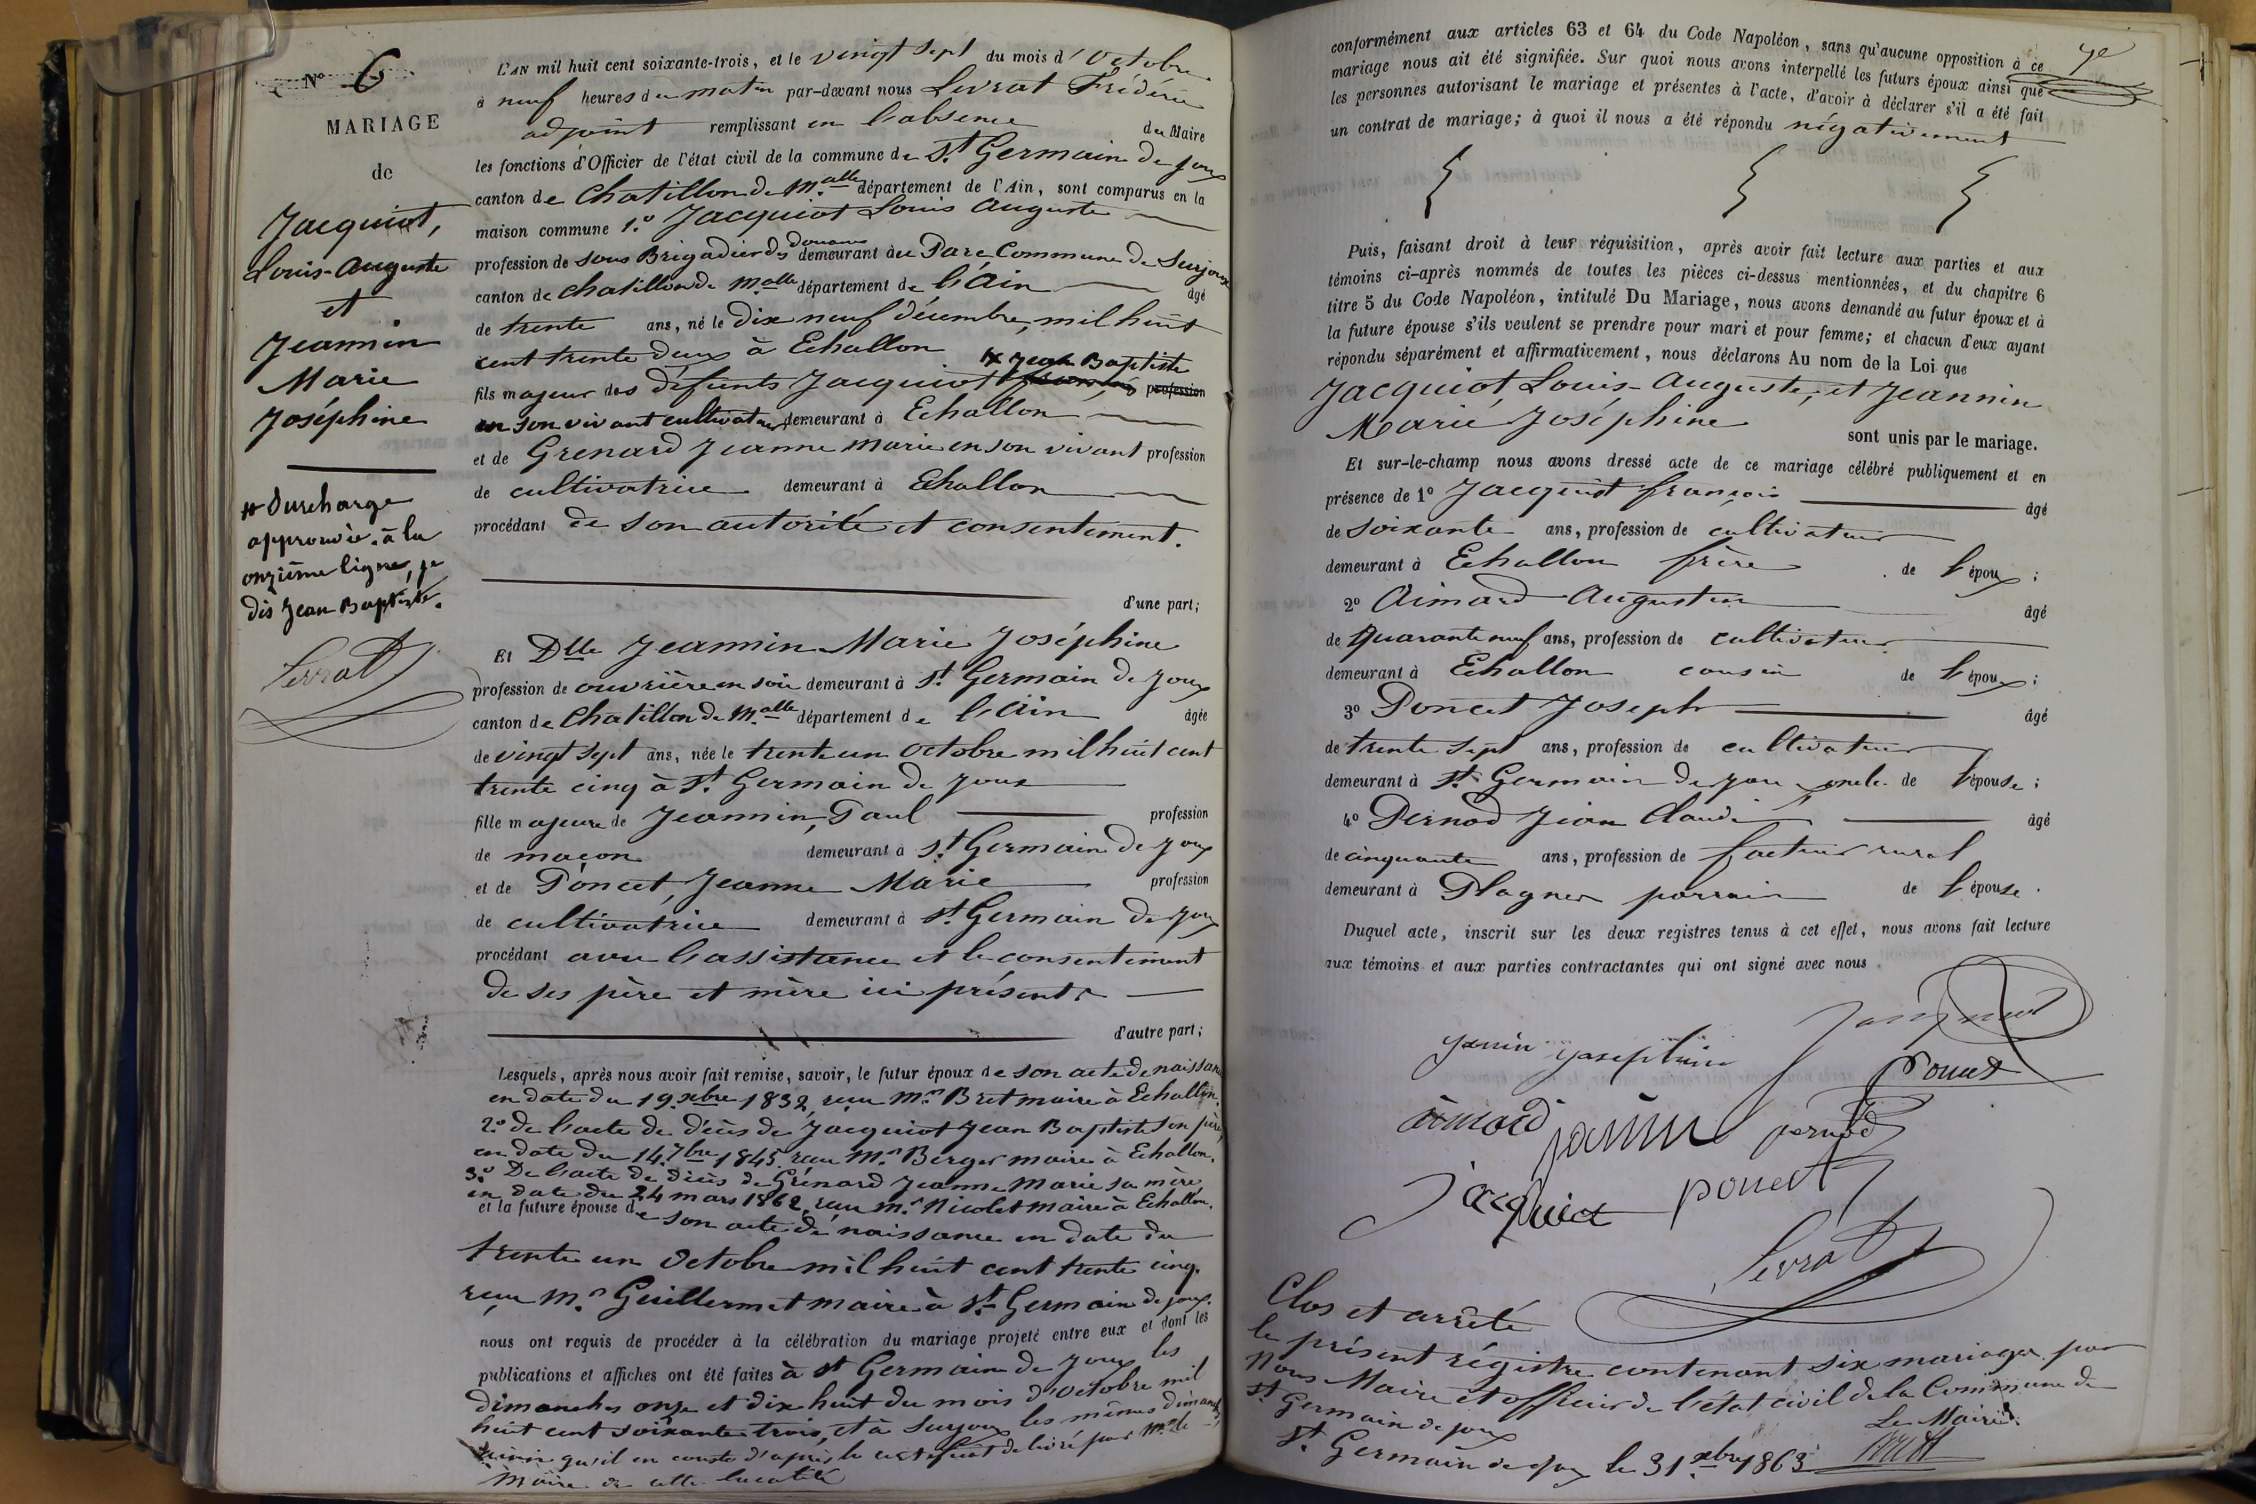 N° 6
MARIAGE
de
Jacquiot,
Louis-Auguste
et
Jeannin
Marie
Joséphine
# Surcharge
approuvée à la
onzième ligne, je
dis Jean Baptiste.
Levrat
L'AN mil huit cent soixante-trois, et le vingt sept du mois d'Octobre
à neuf heures du matin par-devant nous Levrat Frédéric
adjoint remplissant en l'absence du Maire
les fonctions d'Officier de l'état civil de la commune de St Germain de Joux
canton de Chatillon de M.alle département de l'Ain, sont comparus en la
maison commune 1° Jacquiot Louis Auguste
profession de sous Brigadier des Douanes demeurant au Parc, Commune de Surjoux
canton de Chatillon de M.alle département de l'Ain âgé
de trente ans, né le Dix neuf décembre, mil huit
cent trente deux à Echallon
fils majeur des défunts Jacquiot # Jean Baptiste profession
en son vivant cultivateur demeurant à Echallon
et de Grenard Jeanne Marie en son vivant profession
de cultivatrice demeurant à Echallon
procédant de son autorité et consentement.
d'une part;
Et Dlle Jeannin Marie Joséphine
profession de ouvrière en soie demeurant à St Germain de Joux
canton de Chatillon de M.alle département de l'Ain âgée
de vingt sept ans, née le trente un octobre mil huit cent
trente cinq à St Germain de Joux
fille majeure de Jeannin, Paul profession
de maçon demeurant à St Germain de Joux
et de Poncet, Jeanne Marie profession
de cultivatrice demeurant à St Germain de Joux
procédant avec l'assistance et le consentement
de ses père et mère ici présents
d'autre part;
Lesquels, après nous avoir fait remise, savoir, le futur époux de son acte de naissance
en date du 19 xbre 1832, reçu Mr Bret maire à Echallon.
2° de l'acte de décès de Jacquiot Jean Baptiste son père,
en date du 14 7bre 1845 reçu Mr Berger maire à Echallon.
3° De l'acte de décès de Grenard Jeanne Marie sa mère
en date du 24 mars 1862, reçu Mr Nicolet maire à Echallon.
et la future épouse de son acte de naissance en date du
trente un Octobre mil huit cent trente cinq.
reçu Mr Guillermet maire à St Germain de Joux.
nous ont requis de procéder à la célébration du mariage projeté entre eux et dont les
publications et affiches ont été faites à St Germain de Joux les
dimanches onze et dix huit du mois d'Octobre mil
huit cent soixante trois, et à Surjoux les mêmes dimanches
ainsi qu'il en conste d'après le certificat délivré par Mr le
Maire de cette localité
conformément aux articles 63 et 64 du Code Napoléon, sans qu'aucune opposition à ce
mariage nous ait été signifiée. Sur quoi nous avons interpellé les futurs époux ainsi que
les personnes autorisant le mariage et présentes à l'acte, d'avoir à déclarer s'il a été fait
un contrat de mariage; à quoi il nous a été répondu négativement
Puis, faisant droit à leur réquisition, après avoir fait lecture aux parties et aux
témoins ci-après nommés de toutes les pièces ci-dessus mentionnées, et du chapitre 6
titre 5 du Code Napoléon, intitulé Du Mariage, nous avons demandé au futur époux et à
la future épouse s'ils veulent se prendre pour mari et pour femme; et chacun d'eux ayant
répondu séparément et affirmativement, nous déclarons Au nom de la Loi que
Jacquiot, Louis-Auguste, et Jeannin
Marie Joséphine sont unis par le mariage.
Et sur-le-champ nous avons dressé acte de ce mariage célébré publiquement et en
présence de 1° Jacquiot françois âgé
de soixante ans, profession de cultivateur
demeurant à Echallon frère de l'époux;
2° Aimard Augustin âgé
de Quarante neuf ans, profession de cultivateur
demeurant à Echallon cousin de l'époux;
3° Poncet Joseph âgé
de trente sept ans, profession de cultivateur
demeurant à St Germain de Joux oncle de l'épouse;
4° Pernod Jean Claude âgé
de cinquante ans, profession de facteur rural
demeurant à Plagnes parrain de l'épouse.
Duquel acte, inscrit sur les deux registres tenus à cet effet, nous avons fait lecture
aux témoins et aux parties contractantes qui ont signé avec nous.
Poncet
pernod
jacquiot poncet
Levrat
Clos et arrêté
le présent régistre contenant six mariages par
Nous Maire et officier de l'état civil de la Commune de
St Germain de Joux
Le Maire.
St Germain de Joux le 31 xbre 1863